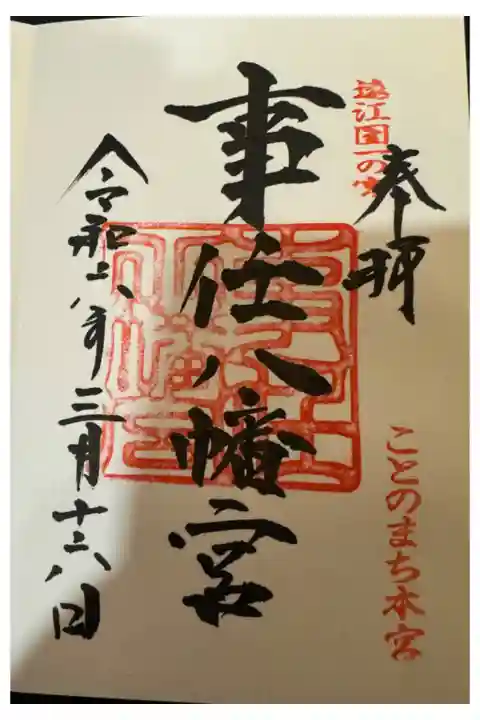 遠江国一の宮
奉拝
ことのまち本宮
事任八幡宮
令和六年三月十六日